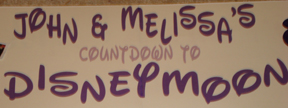 JOHN & MELISSA'S
COUNTDOWN TO
DISNEYMOON